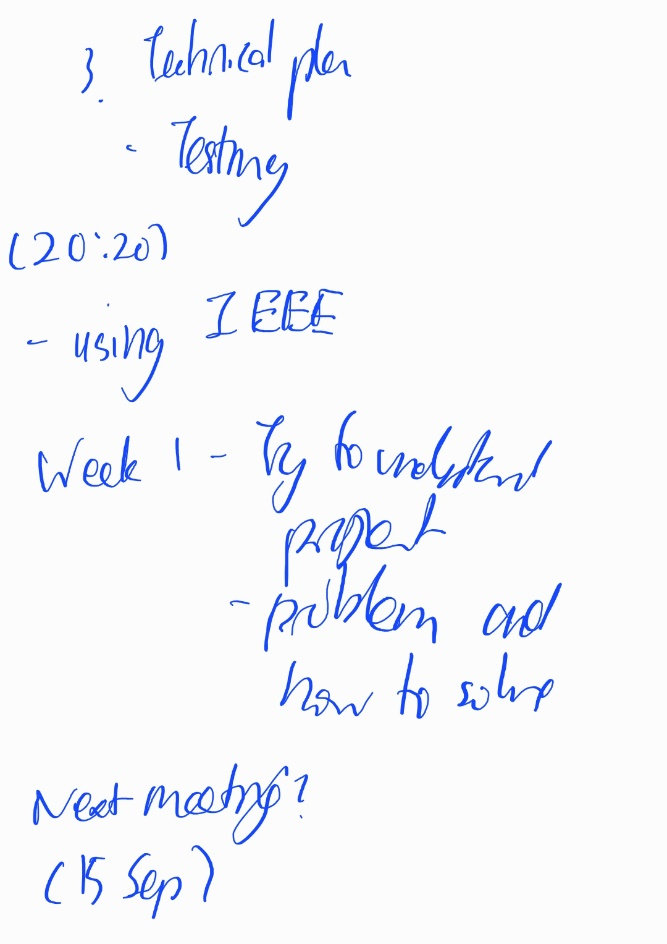 3. Technical plan
- Testing
(20:20)
- using IEEE
Week 1 - Try to understand
project
- problem and
how to solve
Next meeting?
(15 Sep)